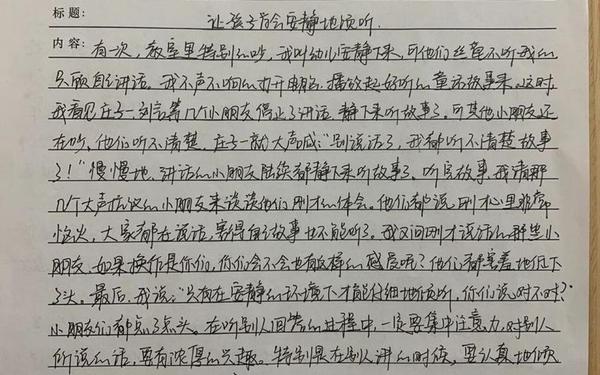 标题: 让孩子学会安静地倾听.
内容: 有次, 教室里特别的吵, 我叫幼儿安静下来, 可他们丝毫不听我的
只顾自己讲话. 我不声不响的打开电脑, 播放起好听的童话故事来, 这时,
我看见庄子一、刘言等几个小朋友停止了讲话, 静下来听故事了. 可其他小朋友还
在吵, 他们听不清楚, 庄子一就大声喊:"别说话了, 我都听不清楚故事
了!" 慢慢地, 讲话的小朋友陆续都静下来听故事了. 听完故事, 我请那
几个大声说话的小朋友来谈谈他们刚才的体会. 他们都说, 刚才心里非常
恼火, 大家都在说话, 害得自己故事也不能听了. 我又问刚才说话的那些小
朋友, 如果换作是你们, 你们会不会也有这样的感受呢? 他们都羞愧地低下
了头. 最后, 我说:"只有在安静的环境下才能仔细地倾听, 你们说对不对?
小朋友们都点了点头. 在听别人回答的过程中, 一定要集中注意力, 对别人
所说的话, 要有浓厚的兴趣. 特别是在别人讲的时候, 要认真地倾